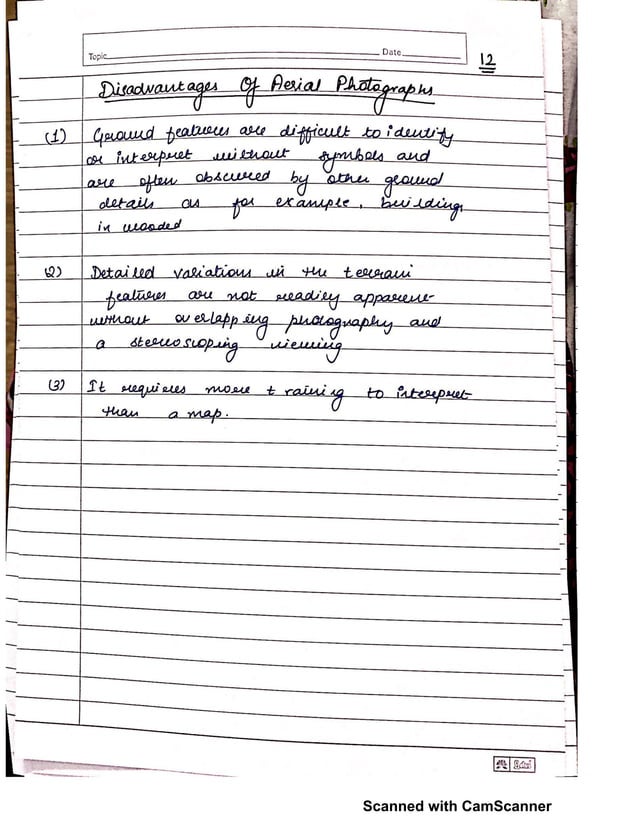 Topic Date
12
Disadvantages Of Aerial Photographs
(1) Ground features are difficult to identify
or interpret without symbols and
are often obscured by other ground
details as for example, building,
in wooded
(2) Detailed variations in the terrain
features are not readily apparent
without overlapping photography and
a stereoscoping viewing
(3) It requires more training to interpret
than a map.
Scanned with CamScanner